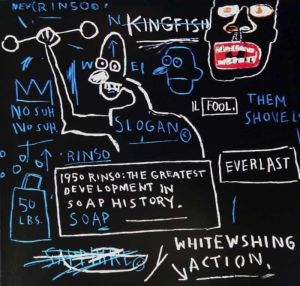 NEW RINSO©
N
KINGFISH
W
E
IL FOOL.
THEM
SHOVEL
NO SUH
NO SUH
SLOGAN©
RINSO
EVERLAST
1950 RINSO: THE GREATEST
DEVELOPMENT IN
SOAP HISTORY.
SOAP
50
LBS.
SAPPHIRE©
WHITEWSHING
ACTION.